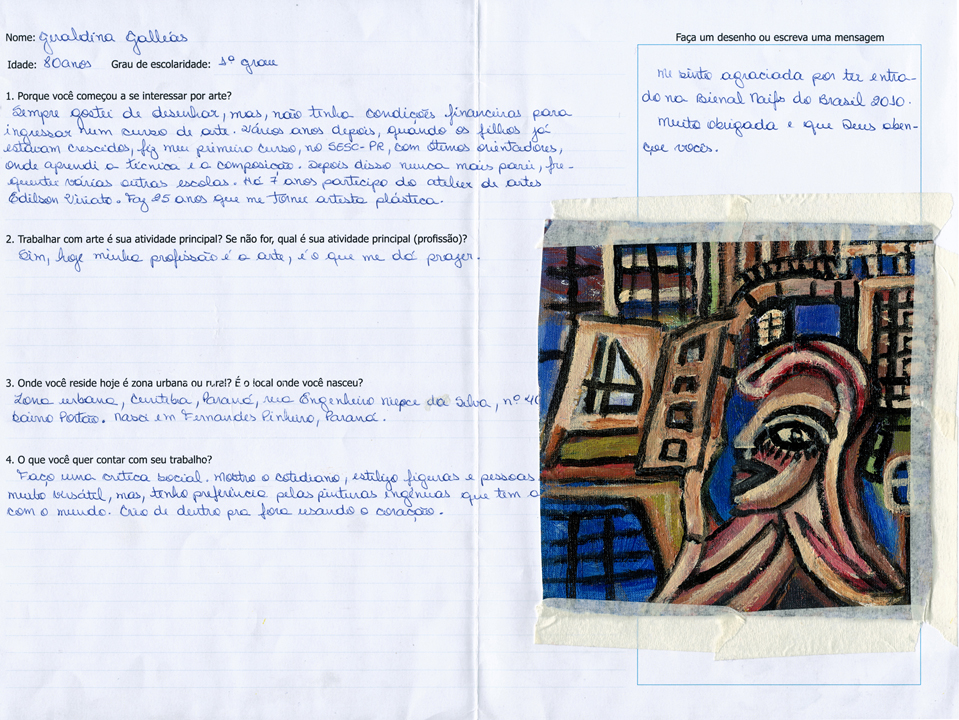 Nome: Geraldina Galléas
Idade: 80 anos Grau de escolaridade: 1º grau
1. Porque você começou a se interessar por arte?
Sempre gostei de desenhar, mas, não tinha condições financeiras para
ingressar num curso de arte. Vários anos depois, quando os filhos já
estavam crescidos, fiz meu primeiro curso, no SESC-PR, com ótimos orientadores,
onde aprendi a técnica e a composição. Depois disso nunca mais parei, fre-
quentei várias outras escolas. Há 7 anos participo do atelier de artes
Edilson Viriato. Faz 25 anos que me tornei artista plástica.
2. Trabalhar com arte é sua atividade principal? Se não for, qual é sua atividade principal (profissão)?
Sim, hoje minha profissão é a arte, é o que me dá prazer.
3. Onde você reside hoje é zona urbana ou rural? É o local onde você nasceu?
Zona urbana, Curitiba, Paraná, rua Engenheiro Niepce da Silva, nº 40
bairro Portão. Nasci em Fernandes Pinheiro, Paraná.
4. O que você quer contar com seu trabalho?
Faço uma crítica social. Mostro o cotidiano, estilizo figuras e pessoas
muito versátil, mas, tenho preferência pelas pinturas ingênuas que tem a
com o mundo. Crio de dentro pra fora usando o coração.
Faça um desenho ou escreva uma mensagem
Me sinto agraciada por ter entra-
do na Bienal Naifs do Brasil 2010.
Muito obrigada e que Deus aben-
çoe vocês.